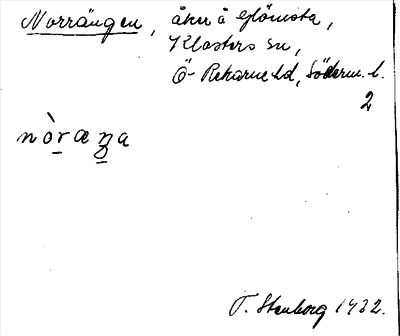 Norrängen, åker å Glömsta,
Klosters sn,
Ö-Rekarne hd, Söderm. l.
2
nòræŋa
T. Stenborg 1932.